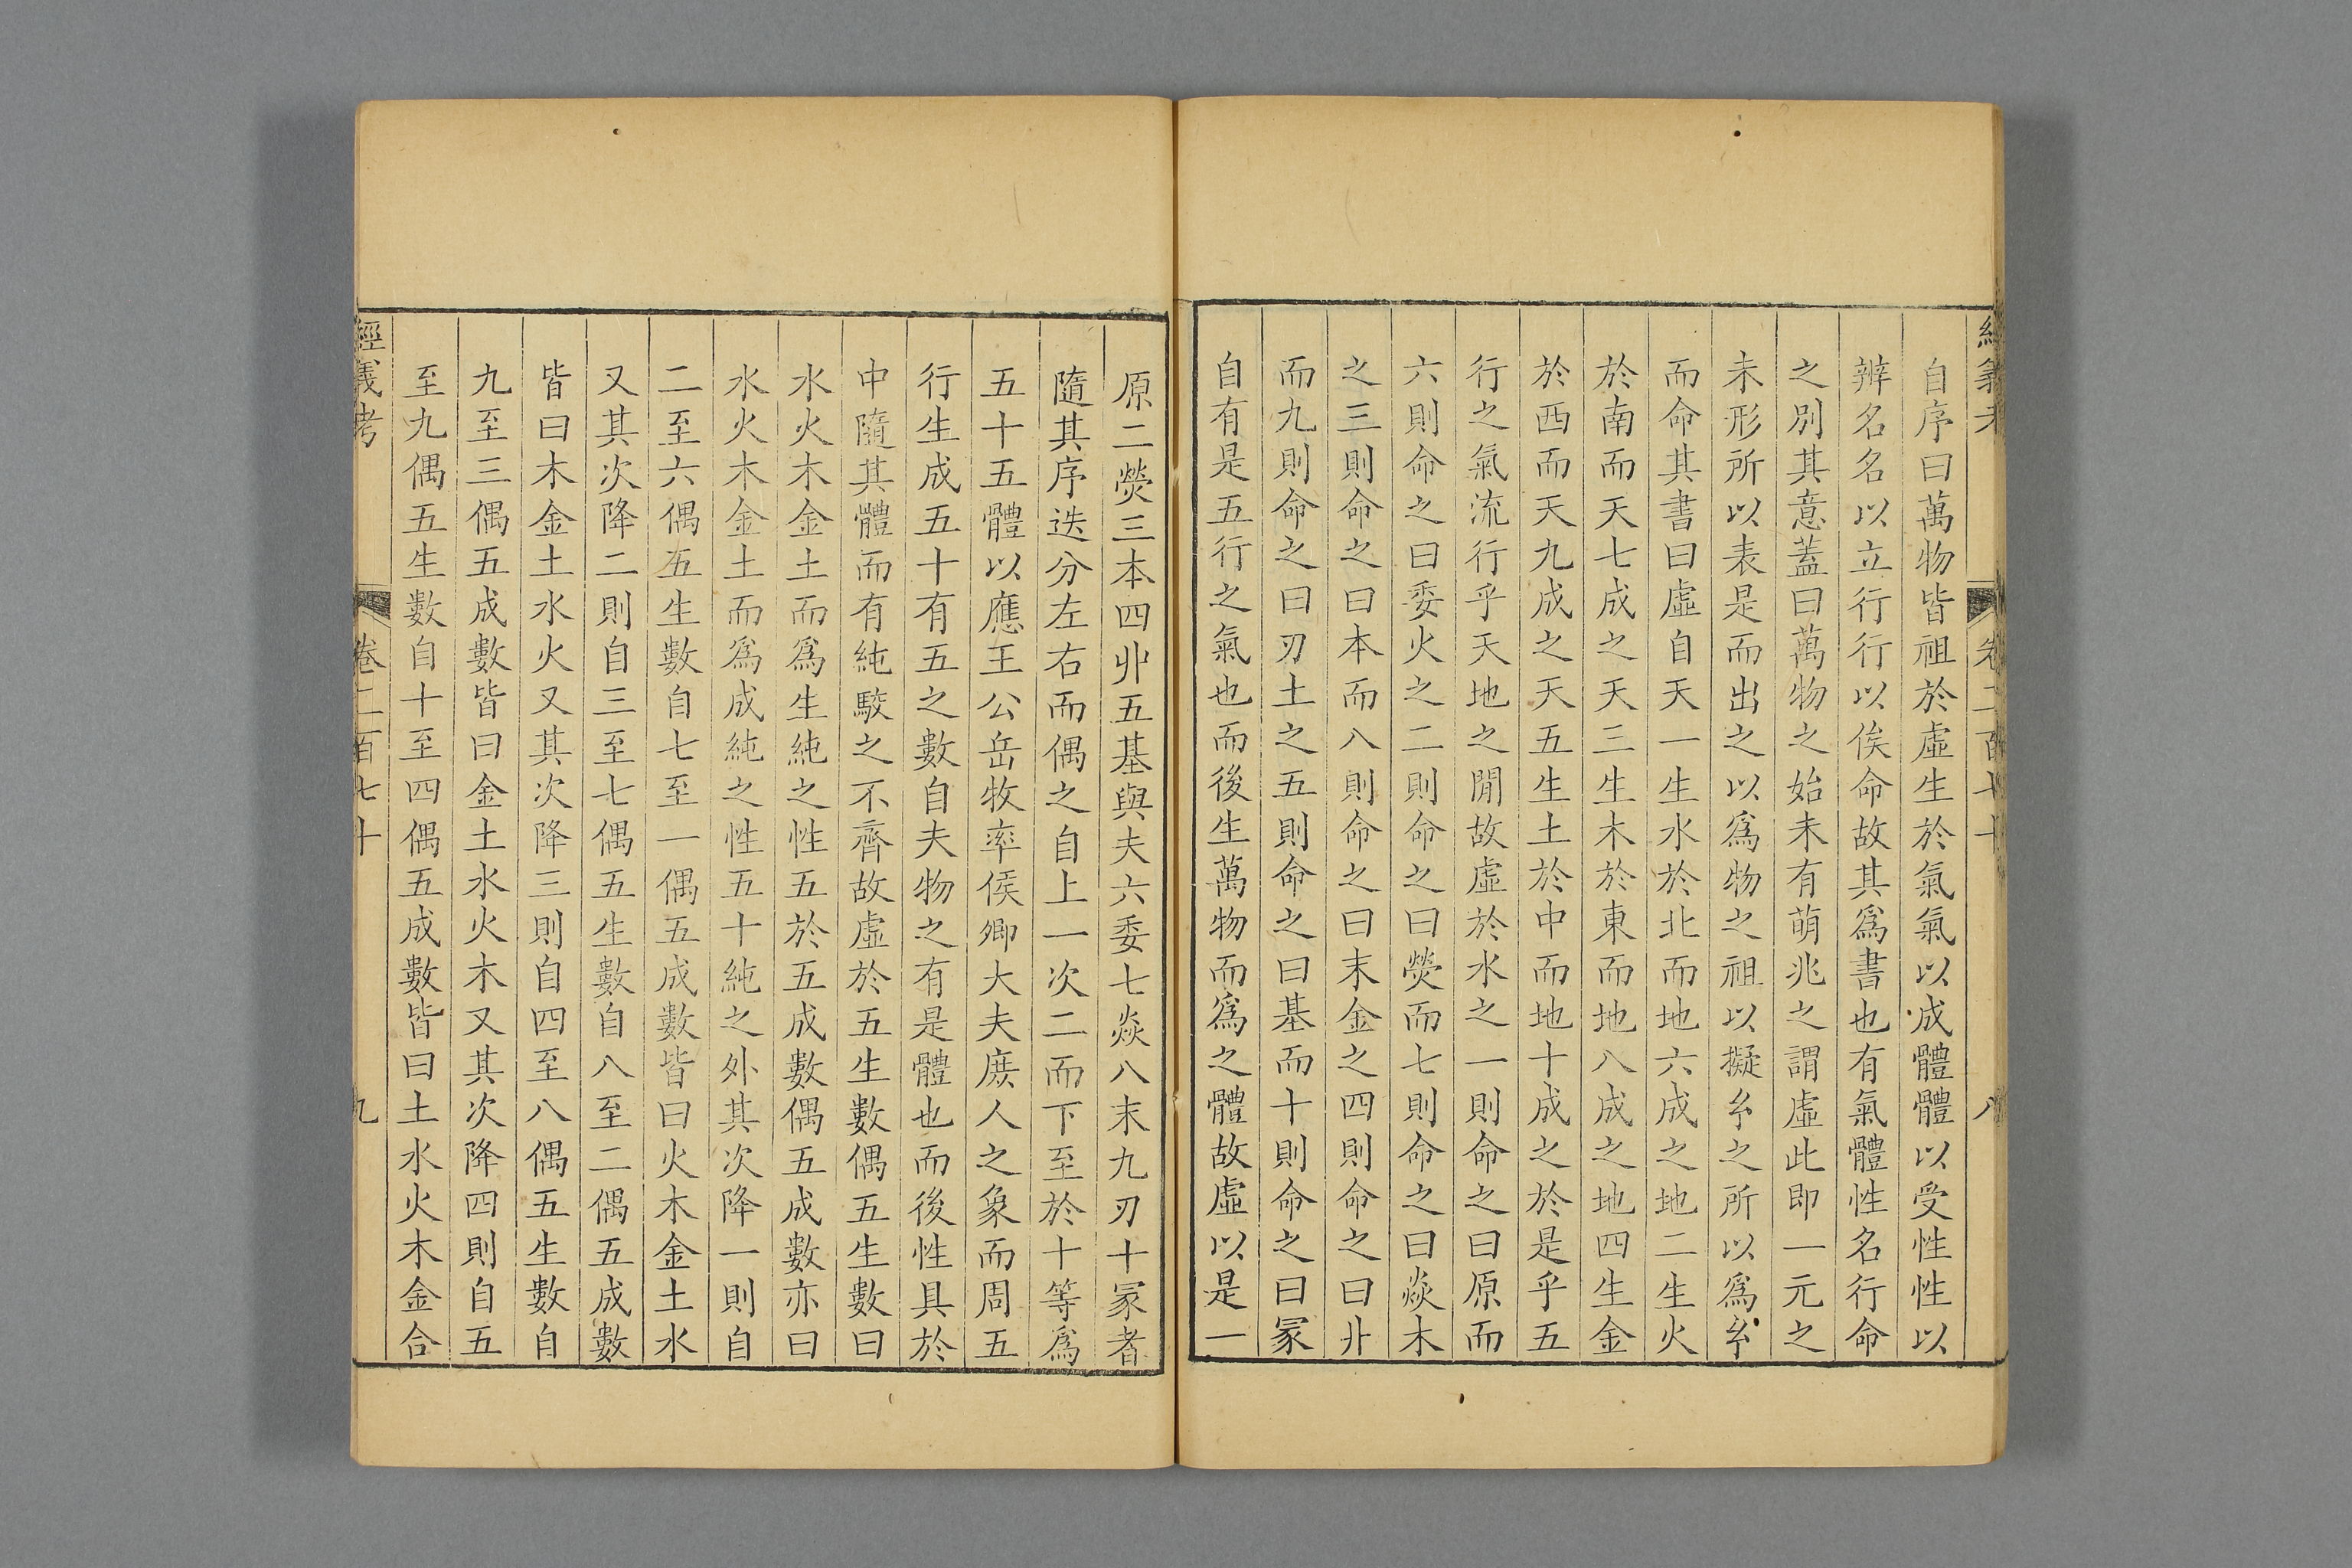 自序曰萬物皆祖於虛生於氣氣以成體體以受性性以
辨名名以立行行以俟命故其爲書也有氣體性名行命
之別其意蓋曰萬物之始未有萌兆之謂虛此即一元之
未形所以表是而出之以爲物之祖以擬幺之所以爲幺
而命其書曰虛自天一生水於北而地六成之地二生火
於南而天七成之天三生木於東而地八成之地四生金
於西而天九成之天五生土於中而地十成之於是乎五
行之氣流行乎天地之閒故虛於水之一則命之曰原而
六則命之曰委火之二則命之曰熒而七則命之曰焱木
之三則命之曰本而八則命之曰末金之四則命之曰丱
而九則命之曰刃土之五則命之曰基而十則命之曰冡
自有是五行之氣也而後生萬物而爲之體故虛以是一
經義考 卷二百七十 八
原二熒三本四丱五基與夫六委七焱八末九刃十冡者
隨其序迭分左右而偶之自上一次二而下至於十等爲
五十五體以應王公岳牧率侯卿大夫庶人之象而周五
行生成五十有五之數自夫物之有是體也而後性具於
中隨其體而有純駁之不齊故虛於五生數偶五生數曰
水火木金土而爲生純之性五於五成數偶五成數亦曰
水火木金土而爲成純之性五十純之外其次降一則自
二至六偶五生數自七至一偶五成數皆曰火木金土水
又其次降二則自三至七偶五生數自八至二偶五成數
皆曰木金土水火又其次降三則自四至八偶五生數自
九至三偶五成數皆曰金土水火木又其次降四則自五
至九偶五生數自十至四偶五成數皆曰土水火木金合
經義考 卷二百七十 九